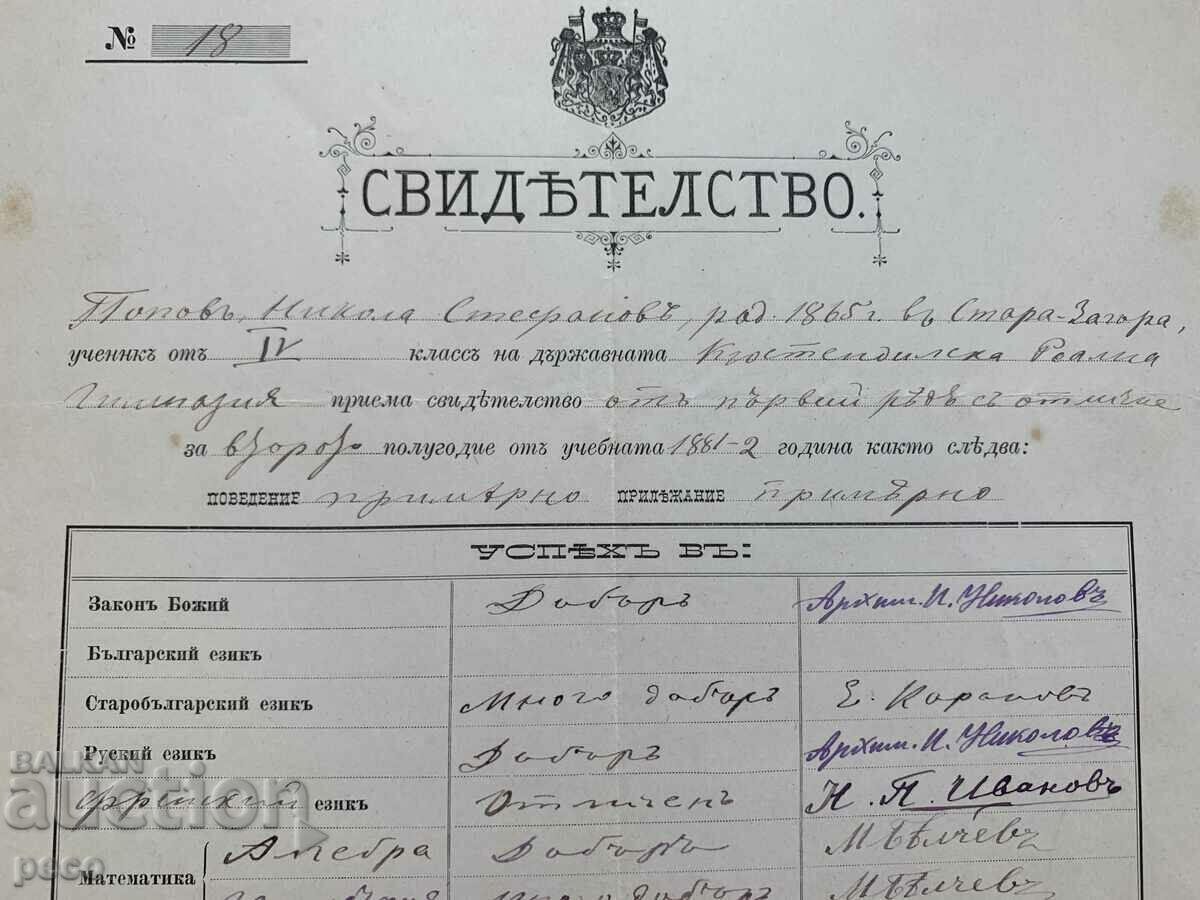 № 18
СВИДѢТЕЛСТВО.
Поповъ, Никола Стефановъ, род. 1865 г. въ Стара-Загора,
ученикъ отъ IV классъ на държавната Кюстендилска Реална
Гимназия приема свидѣтелство отъ първий рѣдъ съ отличие
за второто полугодие отъ учебната 1881-2 година както слѣдва:
ПОВЕДЕНИЕ примѣрно ПРИЛѢЖАНИЕ примѣрно
УСПѢХЪ ВЪ:
Законъ Божий Добъръ Архим. И. Николовъ
Български езикъ
Старобългарский езикъ Много добъръ Е. Карановъ
Руский езикъ Добъръ Архим. И. Николовъ
Френский езикъ Отличенъ Н. П. Ивановъ
Математика Алгебра Добъръ
много добъръ
BALKAN
auction
peco